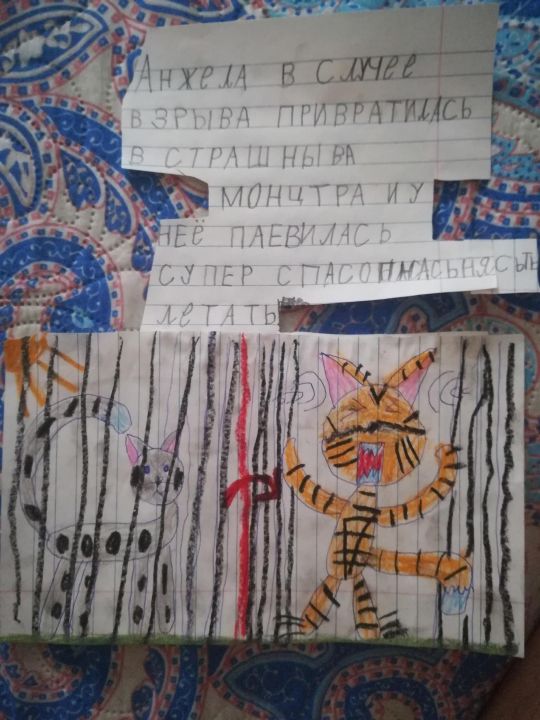 АНЖЕЛА В СЛУЧЕЕ
ВЗРЫВА ПРИВРАТИЛАСЬ
В СТРАШНЫВА
МОНЦТРА И У
НЕЁ ПАЕВИЛАСЬ
СУПЕР
ЛЕТАТЬ